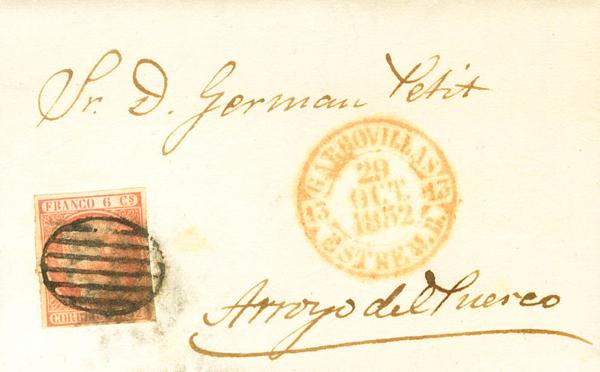 Sr. D. German Petit
GARROVILLAS
29
OCT.
1852
13 13
ESTREM. B.
FRANCO 6 CS
CORREOS
Arroyo del Puerco